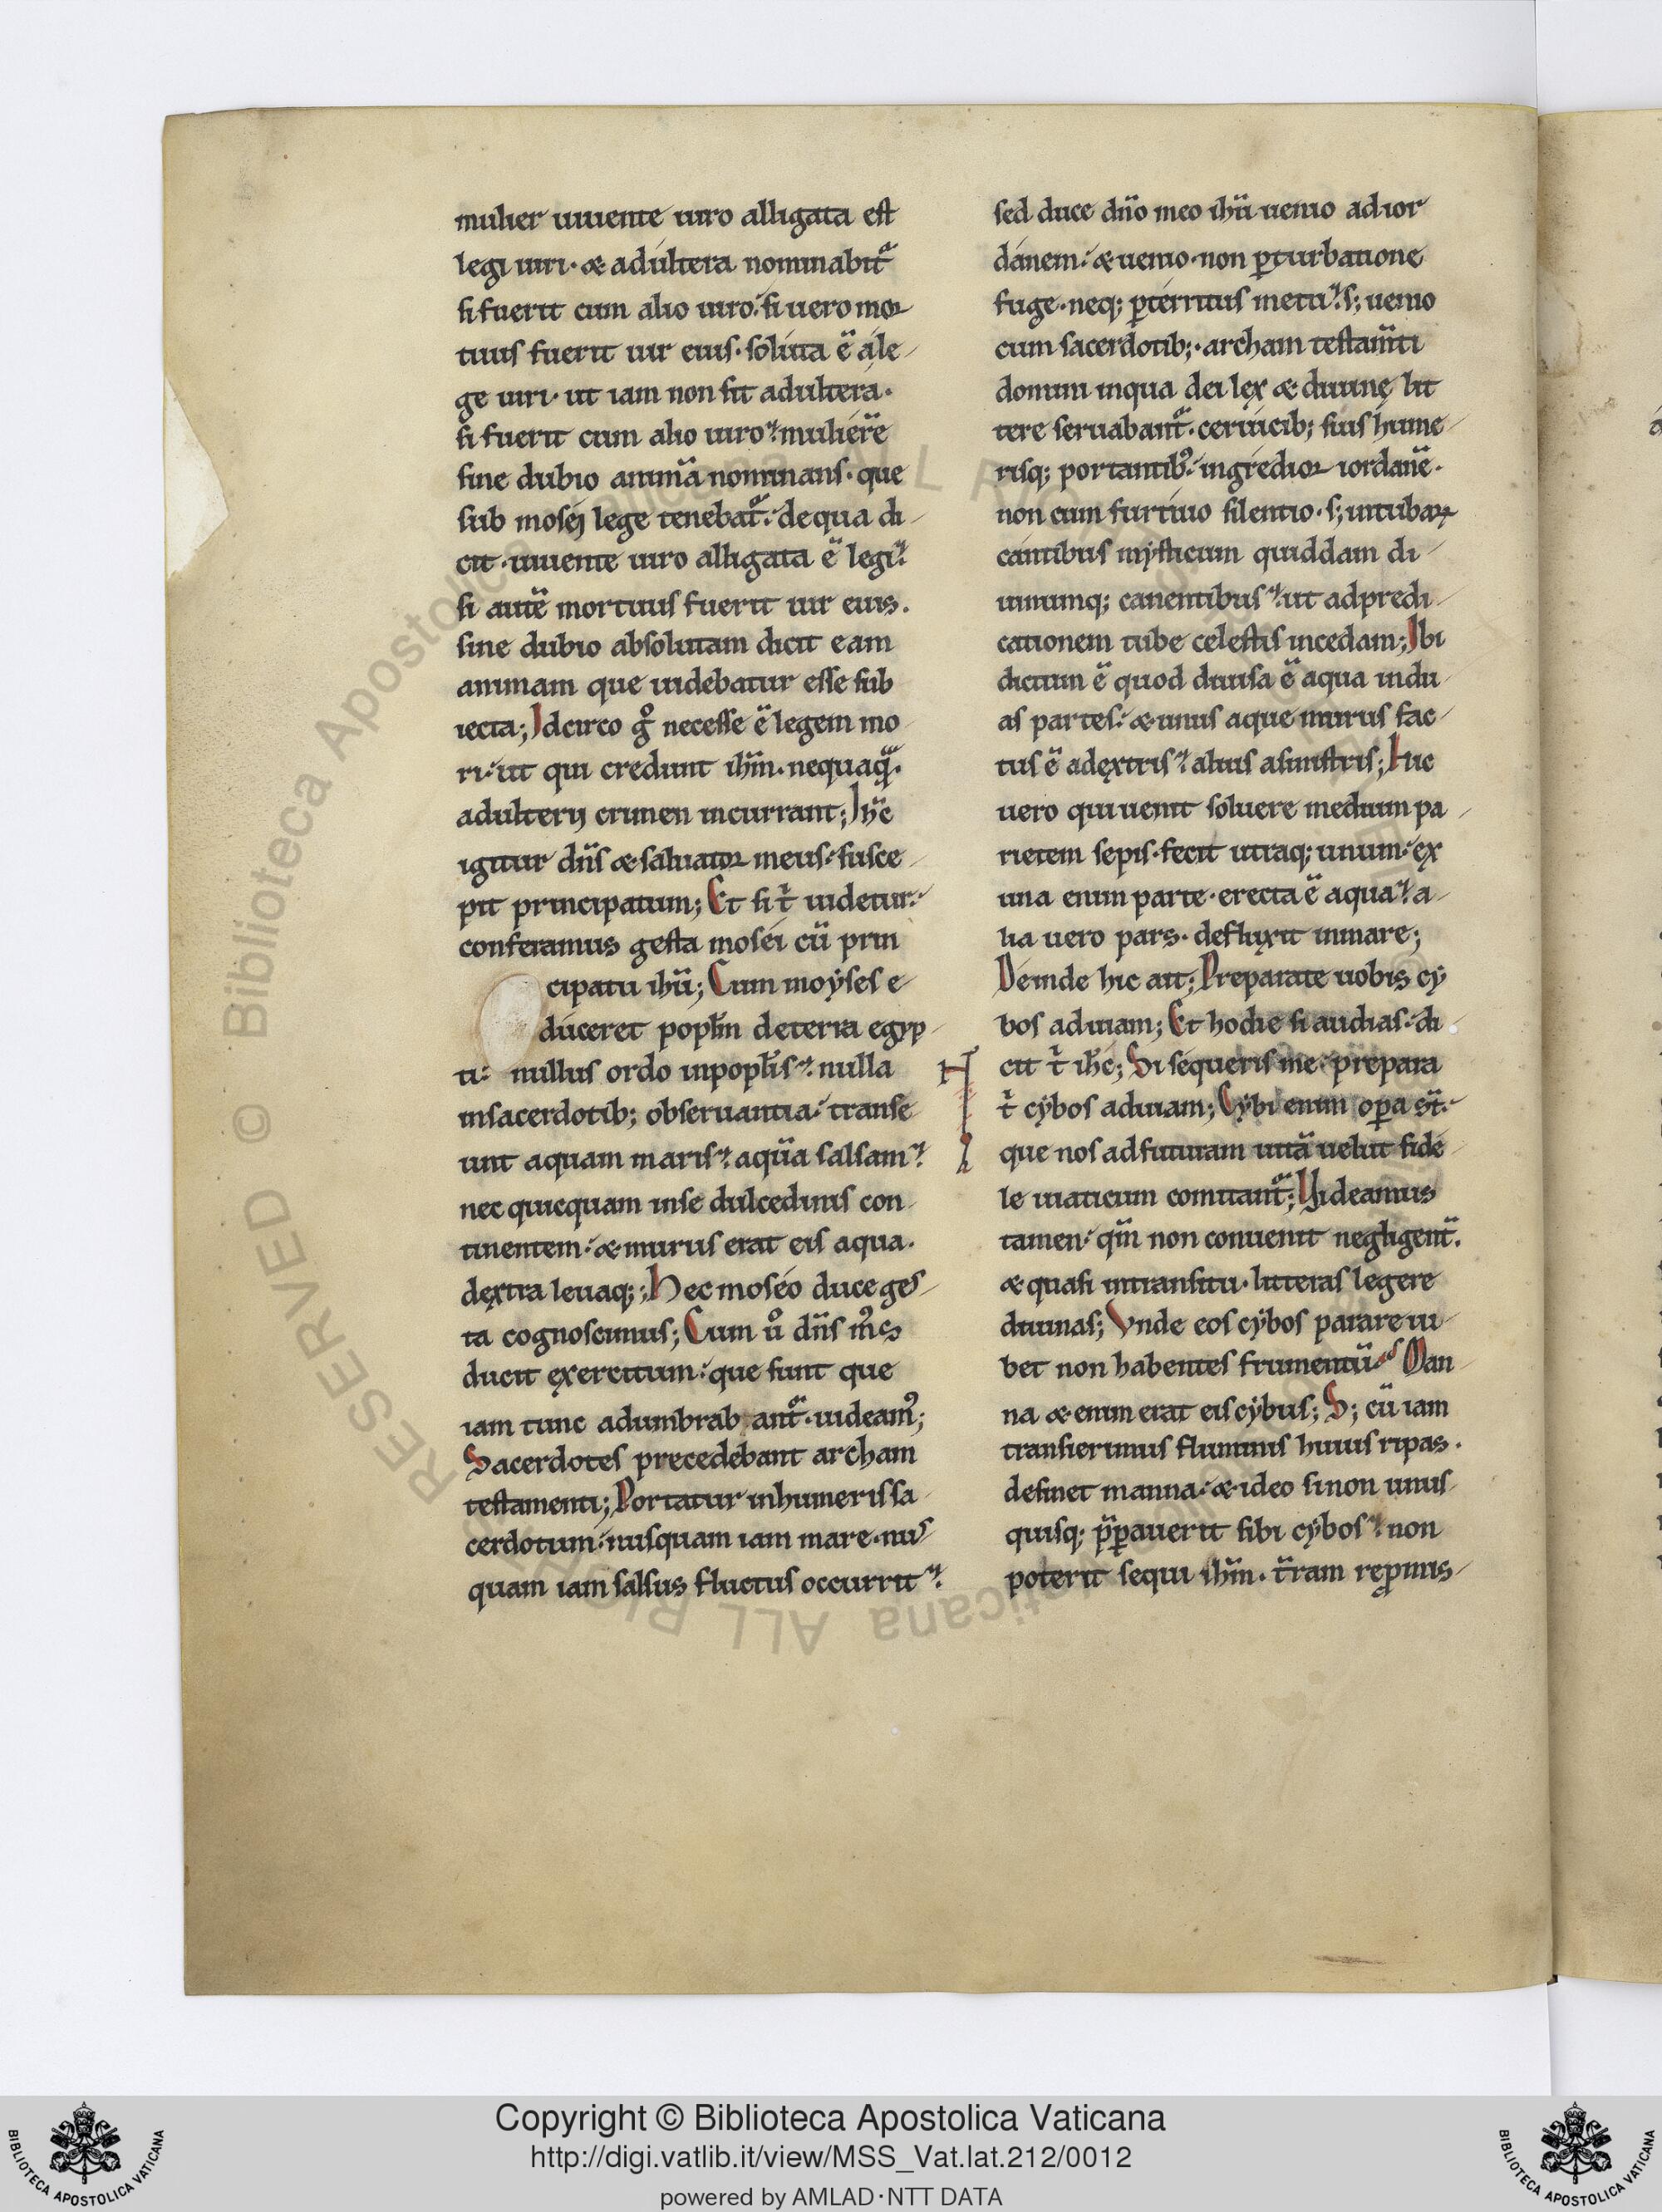 mulier uiuente uiro alligata est
legi uiri· & adultera nominabit᷑
si fuerit cum alio uiro: si uero mor
tuus fuerit uir eius· soluta ē ale-
ge uiri· ut iam non sit adultera·
si fuerit cum alio uiro: muliere̅
sine dubio anima̅ nominans· que
sub mosei lege tenebat᷑: dequa di-
cit· uiuente uiro alligata ē legi:
si aute̅ mortuus fuerit uir eius.
sine dubio absolutam dicit eam
animam que uidebatur esse sub
iecta; Idcirco gͦ necesse ē legem mo-
ri: ut qui credunt ihm̅· nequaq̅·
adulterij crimen incurrant; Ihc̅
igitur dn̅s & saluator meus: susce-
pit principatum; Et si t̅ uidetur:
conferamus gesta mosei cu̅ prin
cipatu ihu̅; Cum moÿses e-
duceret popl̅m deterra egyp-
ti: nullus ordo inpopl̅is: nulla
insacerdotib; obseruantia: transe-
unt aquam maris: aqua̅ salsam:
nec quicquam inse dulcedinis con-
tinentem: & murus erat eis aqua·
dęxtra leuaq;; Hec moseo duce ges-
ta cognoscimus; Cum uͦ dn̅s m̅s
ducit ęxercitum: que sunt que
iam tunc adumbrab ant᷑· uideam᷒;
Sacerdotes precedebant archam
testamenti; Portatur inhumeris sa-
cerdotum: nusquam iam mare· nus
quam iam salsus fluctus occurrit:
sed duce dn̅o meo ihu̅ uenio adior
danem: & uenio· non ꝑturbatione
fuge· neq; ꝑterritus metu: s; uenio
cum sacerdotib;· archam testam̅ti
domini inqua dei lęx & diuinę lit
tere seruabant᷑· ceruicib; suis hume-
risq; portantib᷒: ingredior iordane̅·
non cum furtiuo silentio· s; intubarꝝ
cantibus mysticum quiddam di-
uinumq; canentibus: ut adpredi-
cationem tube celestis incedam; Ibi
dictum ē quod diuisa ē aqua indu-
as partes: & unus aque murus fac-
tus ē adęxtris: alius asinistris; Hic
uero qui uenit soluere medium pa-
rietem sepis· fecit utraq; unum: ęx
una enim parte· erecta ē aqua: a-
lia uero pars· defluxit inmare;
Deinde hic ait; Preparate uobis cy
bos aduiam; Et hodie si audias: di-
cit t̅ ihc̅; Si sequeris me: prepara
t̅ cÿbos aduiam; Cÿbi enim oꝑa st̅:
que nos adfuturam uita̅ uelut fide-
le uiaticum comitant᷑; Uideamus
tamen: qm̅ non conuenit negligent̅.
& quasi intransitu· litteras legere
diuinas; Vnde eos cÿbos parare iu-
bet non habentes frumentu̅: Man-
na & enim erat eis cÿbus; S; cu̅ iam
transierimus fluminis huius ripas·
desinet manna: & ideo sinon unus-
quisq; p̅ꝑauerit sibi cÿbos: non
poterit sequi ihm̅· t̅ram reꝓmis-
Copyright © Biblioteca Apostolica Vaticana
http://digi.vatlib.it/view/MSS_Vat.lat.212/0012
powered by AMLAD·NTT DATA